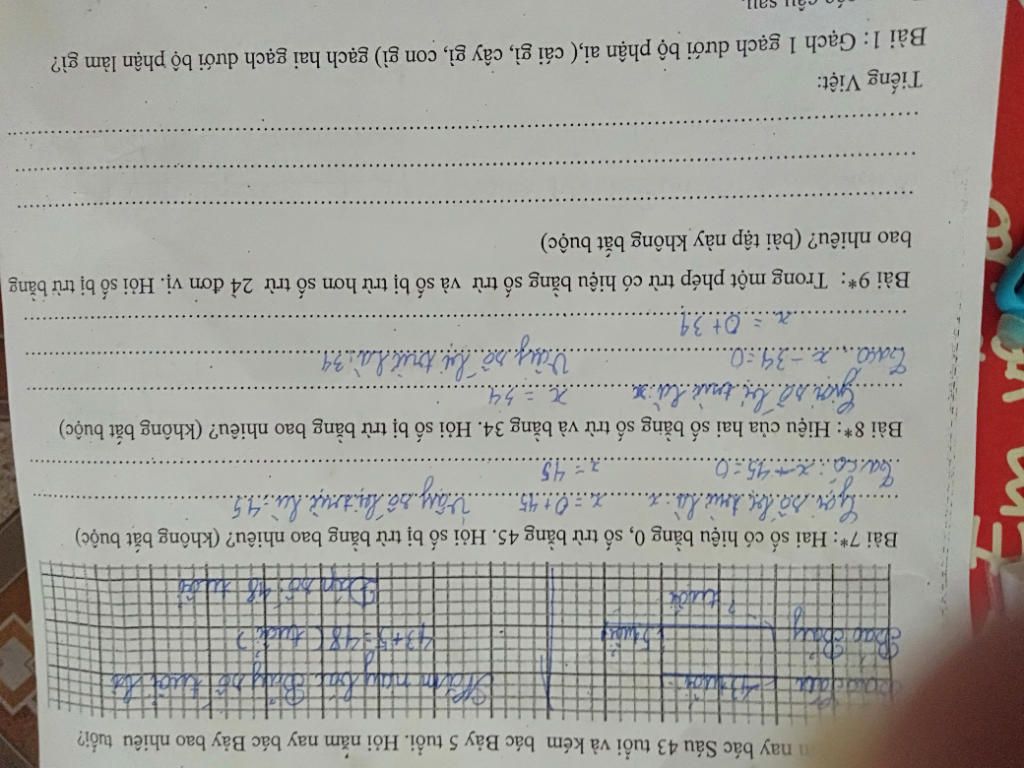 nay bác Sáu 43 tuổi và kém bác Bảy 5 tuổi. Hỏi năm nay bác Bảy bao nhiêu tuổi?
43 tuổi
Năm nay bác Bảy số tuổi là
Bác Bảy
5 tuổi
43 + 5 = 48 ( tuổi )
? tuổi
Đáp số 48 tuổi
Bài 7*: Hai số có hiệu bằng 0, số trừ bằng 45. Hỏi số bị trừ bằng bao nhiêu? (không bắt buộc)
Gọi số bị trừ là: x x = 0 + 45 Vậy số bị trừ là: 45
Ta có: x - 45 = 0 x = 45
Bài 8*: Hiệu của hai số bằng số trừ và bằng 34. Hỏi số bị trừ bằng bao nhiêu? (không bắt buộc)
Gọi số bị trừ là: x x = 34
Ta có: x - 34 = 0 Vậy số bị trừ là: 34
x = 0 + 34
Bài 9*: Trong một phép trừ có hiệu bằng số trừ và số bị trừ hơn số trừ 24 đơn vị. Hỏi số bị trừ bằng
bao nhiêu? (bài tập này không bắt buộc)
Tiếng Việt:
Bài 1: Gạch 1 gạch dưới bộ phận ai,( cái gì, cây gì, con gì) gạch hai gạch dưới bộ phận làm gì?
câu sau.